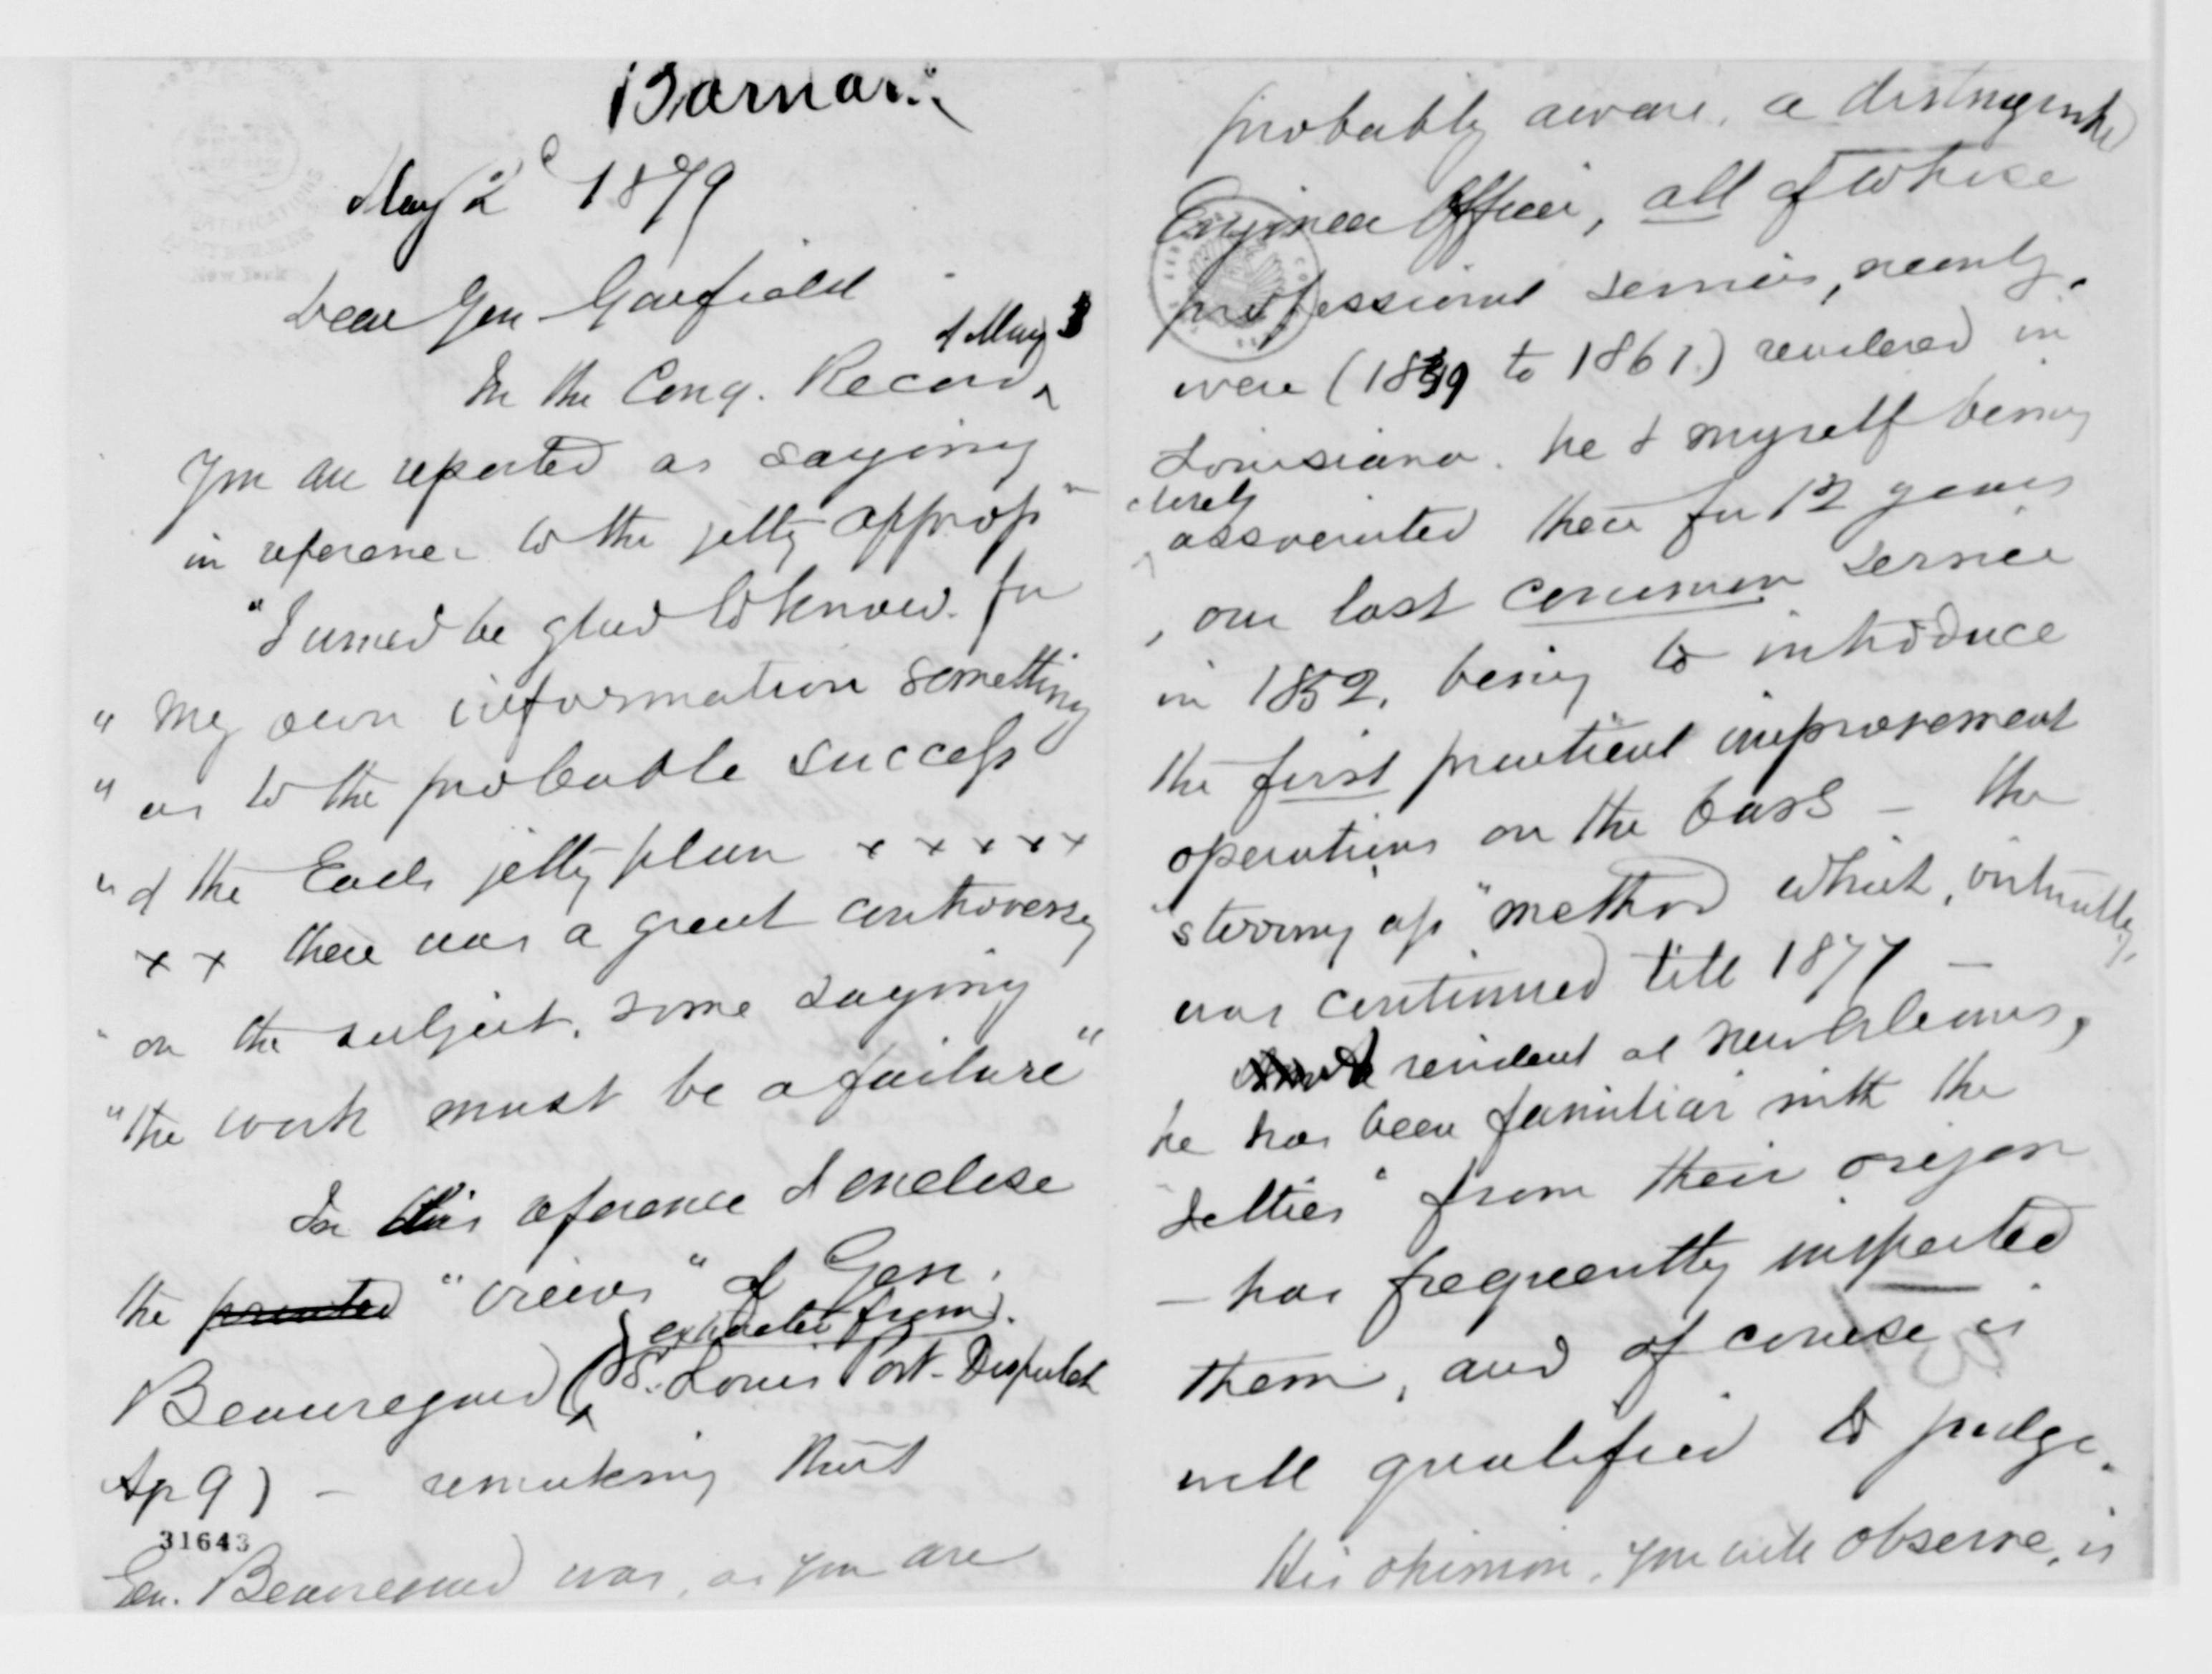 Barnard
May 2d 1879
Dear Gen Garfield
In the Cong. Record of May 1
You are reported as saying
in reference to the jetty approp-n
"I would be glad to know. for
" my own information something
" as to the probable success
" of the Eads jetty plan x x x x x
x x there was a great controversy
" on the subject, some saying
"the work must be a failure"
In this reference I enclose
the printed "views" of Gen.
extracted from
Beauregard (St. Louis Post-Dispatch
Ap 9) – remarking that
31643
Gen. Beauregard was, as you are
probably aware, a distinguished
Engineer Officer, all of whose
professional services, nearly,
were (1839 to 1861.) rendered in
Louisiana. he & myself being
closely
associated there for 12 years
, our last common service
in 1852, being to introduce
the first practical improvement
operations on the bars – the
"stirring up" method which, virtually,
was continued till 1877 –
resident at New Orleans,
he has been familiar with the
"Jetties" from their origin
– has frequently inspected
them, and of course is
well qualified to judge.
His opinion, you will observe, is